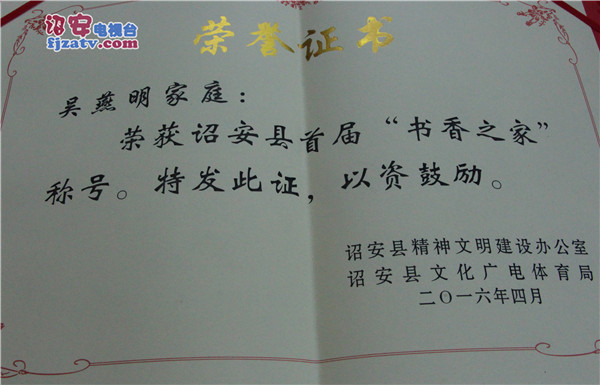 诏安电视台
fjzatv.com
荣誉证书
吴燕明家庭：
荣获诏安县首届“书香之家”
称号。特发此证，以资鼓励。
诏安县精神文明建设办公室
诏安县文化广电体育局
二〇一六年四月